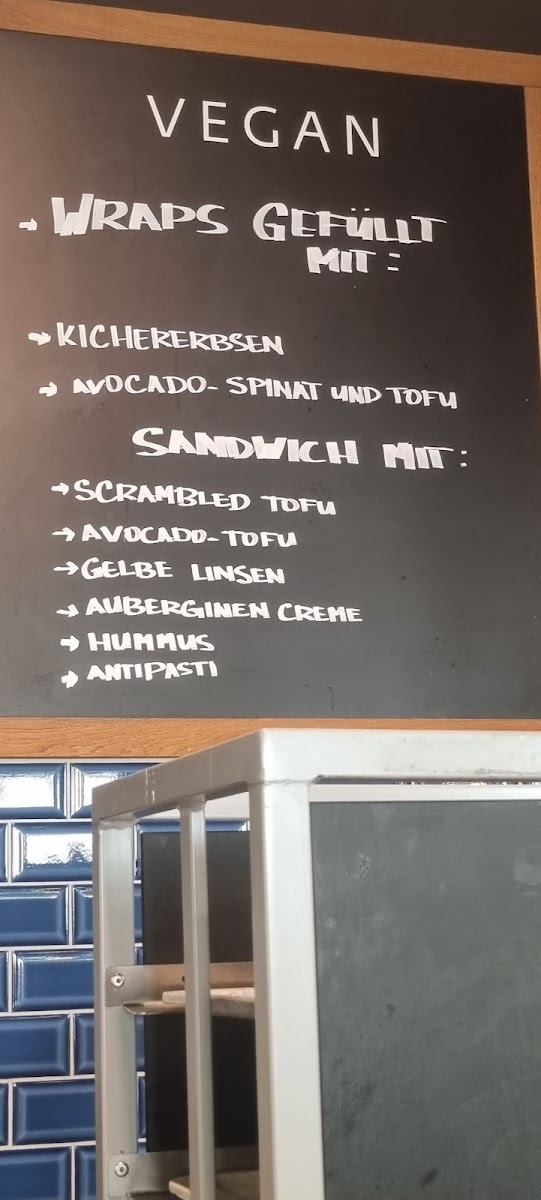 VEGAN
→ WRAPS GEFÜLLT
MIT:
→ KICHERERBSEN
→ AVOCADO-SPINAT UND TOFU
SANDWICH MIT:
→ SCRAMBLED TOFU
→ AVOCADO-TOFU
→ GELBE LINSEN
→ AUBERGINEN CREME
→ HUMMUS
→ ANTIPASTI